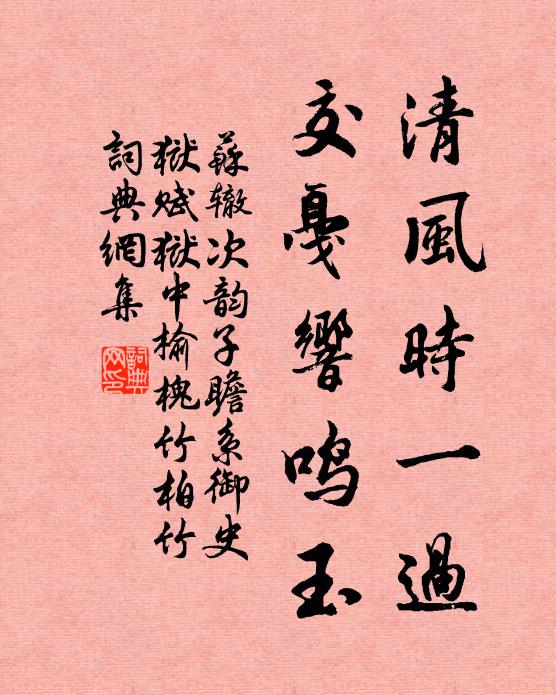 清風時一過
交戛響鳴玉
蘇辙次韵子瞻系御史
獄賦獄中榆槐竹柏竹
詞典網集
詞典网印